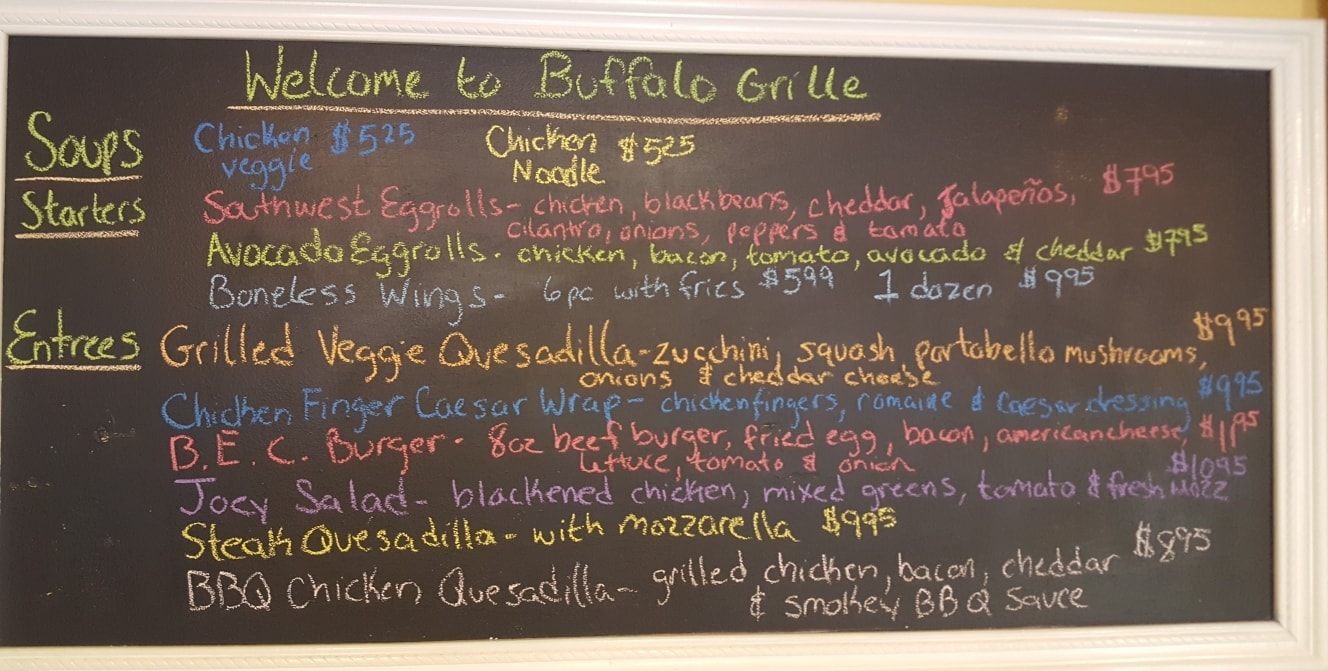 Welcome to Buffalo Grille
Soups Chicken $5.25 Chicken $5.25
veggie Noodle
Starters Southwest Eggrolls- chicken, black beans, cheddar, Jalapeños, $7.95
cilantro, onions, peppers & tomato
Avocado Eggrolls- chicken, bacon, tomato, avocado & cheddar $7.95
Boneless Wings- 6 pc with fries $5.99 1 dozen $9.95
Entrees Grilled Veggie Quesadilla- zucchini, squash, portobello mushrooms, $9.95
onions & cheddar cheese
Chicken Finger Caesar Wrap- chicken fingers, romaine & Caesar dressing $9.95
B.E.C. Burger- 8oz beef burger, fried egg, bacon, american cheese,
lettuce, tomato & onion
Joey Salad- blackened chicken, mixed greens, tomato & fresh Mozz $10.95
Steak Quesadilla- with mozzarella $9.95
BBQ Chicken Quesadilla- grilled chicken, bacon, cheddar $8.95
& smokey BBQ Sauce